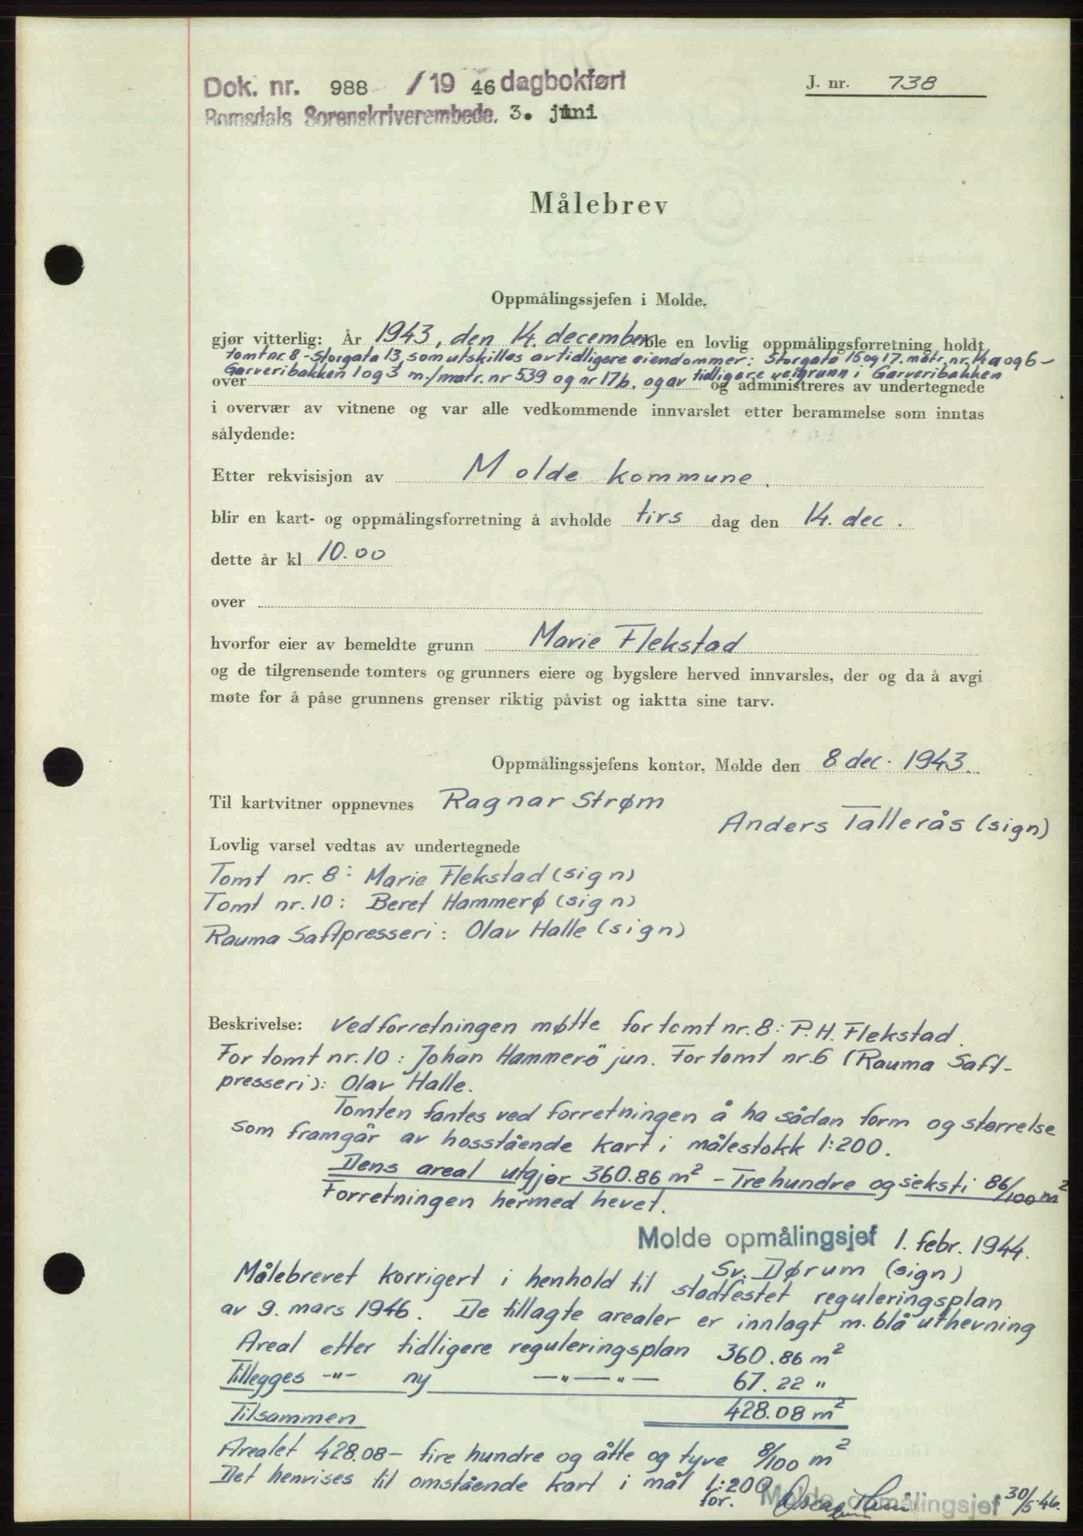 Dok. nr. 988 /19 46 dagbokført
J. nr. 738
Romsdals Sorenskriverembede. 3. juni
Målebrev
Oppmålingssjefen i Molde.
gjør vitterlig: År 1943, den 14. december ble en lovlig oppmålingsforretning holdt
tomt nr. 8 - Storgata 13, som utskilles av tidligere eiendommer: Storgata 15 og 17. matr. nr. 14a og 6 -
Garveribakken 1 og 3 m./matr. nr 539 og nr 17b, og av tidligere veigrunn i Garveribakken
over og administreres av undertegnede
i overvær av vitnene og var alle vedkommende innvarslet etter berammelse som inntas
sålydende:
Etter rekvisisjon av Molde kommune.
blir en kart- og oppmålingsforretning å avholde tirs dag den 14. dec.
dette år kl 10.00
over
hvorfor eier av bemeldte grunn Marie Flekstad
og de tilgrensende tomters og grunners eiere og bygslere herved innvarsles, der og da å avgi
møte for å påse grunnens grenser riktig påvist og iaktta sine tarv.
Oppmålingssjefens kontor, Molde den 8 dec. 1943.
Til kartvitner oppnevnes Ragnar Strøm
Anders Tallerås (sign)
Lovlig varsel vedtas av undertegnede
Tomt nr. 8: Marie Flekstad (sign)
Tomt nr. 10: Beret Hammerø (sign)
Rauma Saftpresseri: Olav Halle (sign)
Beskrivelse: Ved forretningen møtte for tomt nr. 8: P. H. Flekstad.
For tomt nr. 10: Johan Hammerö jun. For tomt nr. 6 (Rauma Saft-
presseri): Olav Halle.
Tomten fantes ved forretningen å ha sådan form og størrelse
som framgår av hosstående kart i målestokk 1:200.
Dens areal utgjør 360.86 m² - Trehundre og seksti 86/100 m²
Forretningen hermed hevet.
Molde opmålingsjef 1. febr. 1944.
Sv. Dørum (sign)
Målebrevet korrigert i henhold til stadfestet reguleringsplan
av 9. mars 1946. De tillagte arealer er innlagt m. blå uthevning
Areal etter tidligere reguleringsplan 360.86 m²
Tillegges -"- ny -"-"- 67.22 "
Tilsammen 428.08 m²
Arealet 428.08 - fire hundre og åtte og tyve 8/100 m²
Det henvises til omstående kart i mål 1:200
for. Molde opmålingsjef 30/5-46.